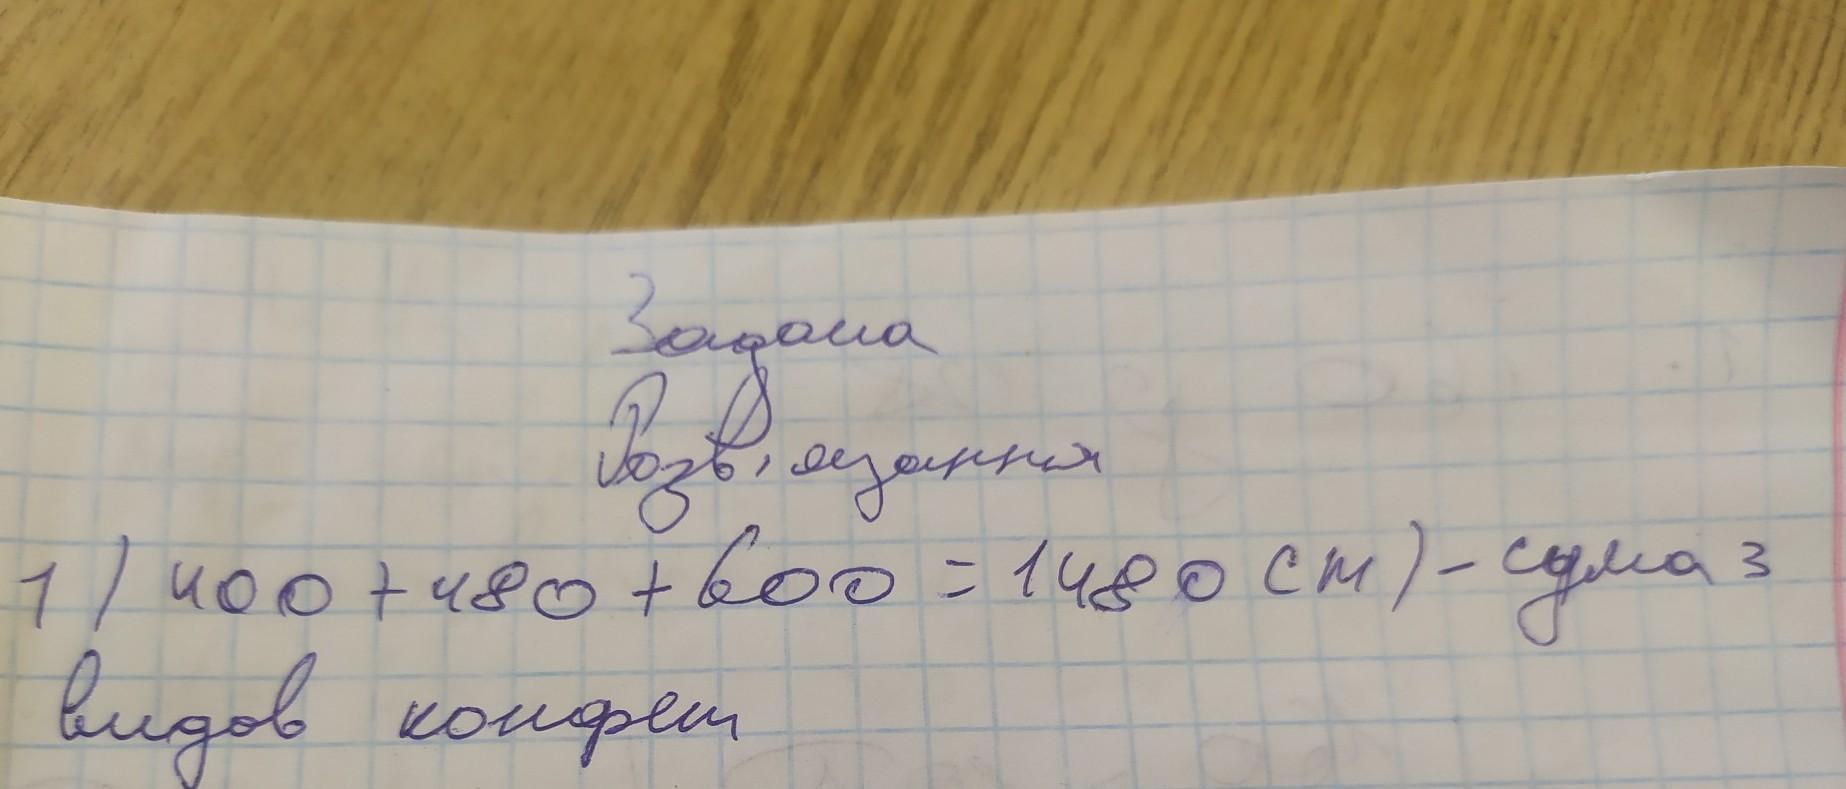 Задача
Розв'язання
1) 400 + 480 + 600 = 1480 (м) - сума 3
видов конфет